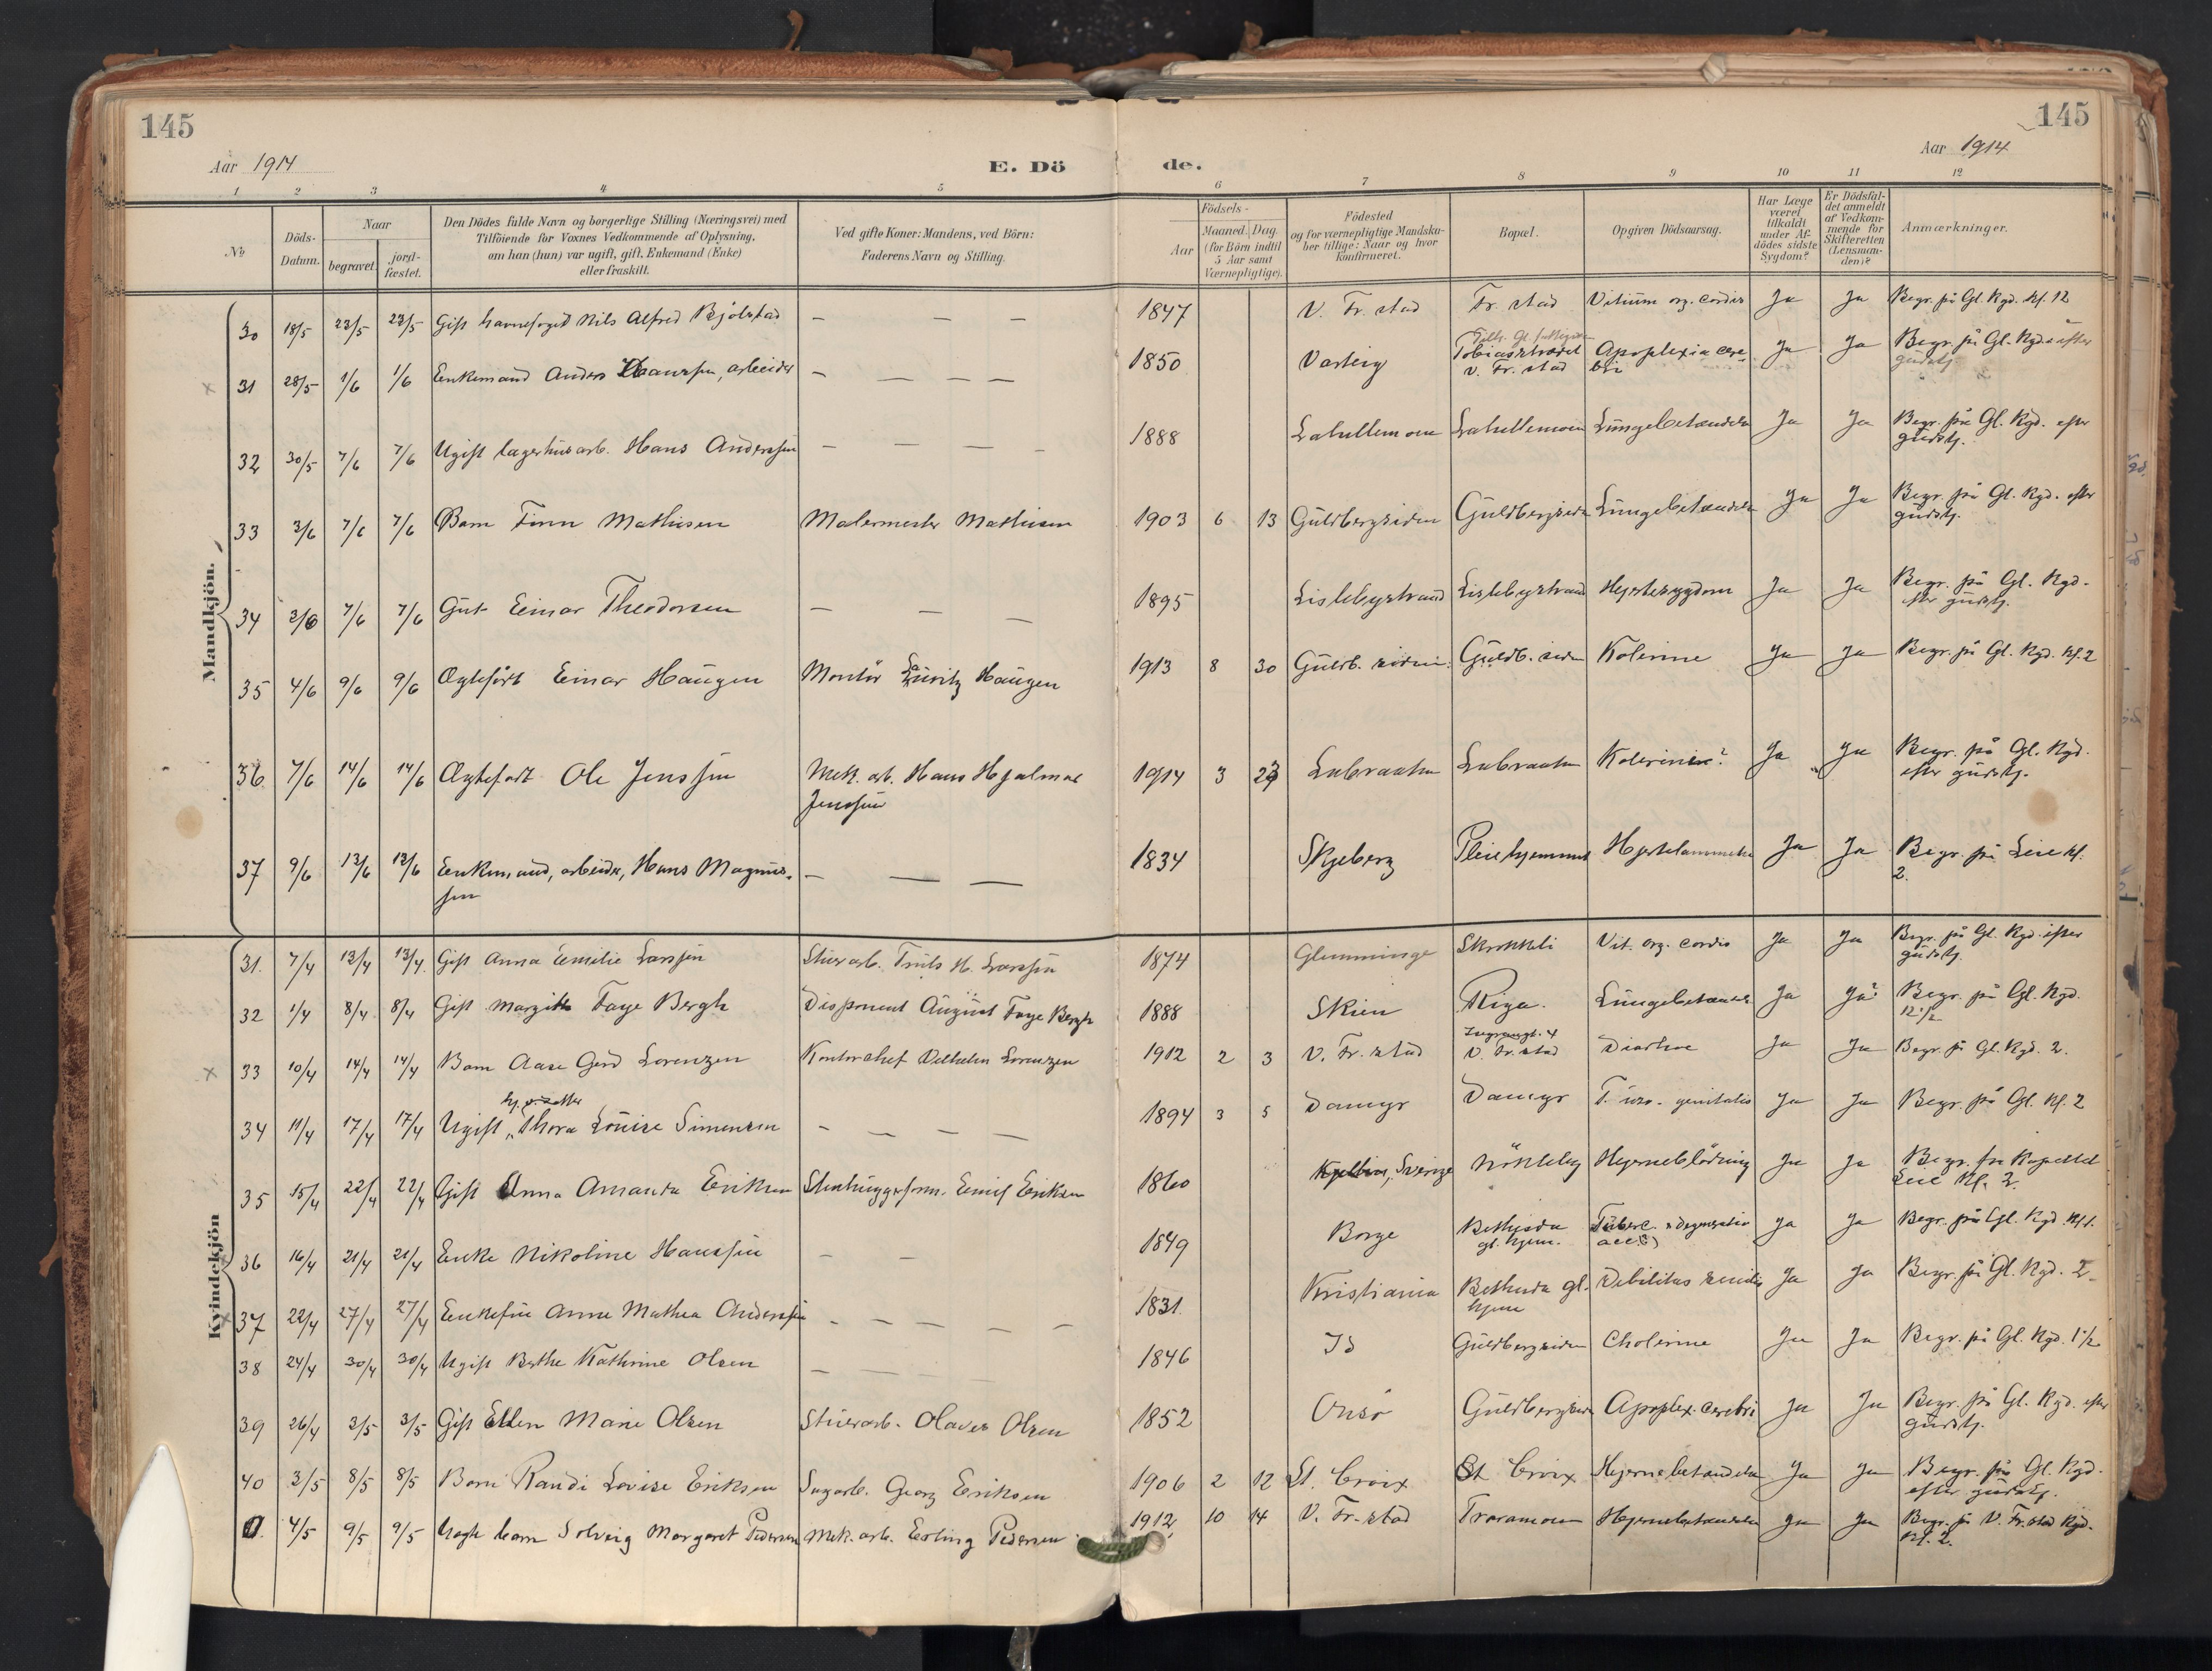 145
145
Aar 1914
E. Dö
de.
Aar 1914
1 2 3 4 5 6 7 8 9 10 11 12
No
Döds-Datum.
Naar
begravet.
jord-fæstet.
Den Dödes fulde Navn og borgerlige Stilling (Næringsvei) med
Tilföiende for Voxnes Vedkommende af Oplysning,
om han (hun) var ugift, gift, Enkemand (Enke)
eller fraskilt.
Ved gifte Koner: Mandens, ved Börn:
Faderens Navn og Stilling.
Födsels-
Aar
Maaned. Dag.
(for Börn indtil
5 Aar samt
Værnepligtige).
Födested
og for værnepligtige Mandska-
ber tillige: Naar og hvor
Konfirmeret.
Bopæl.
Opgiven Dödsaarsag.
Har Læge
været
tilkaldt
under Af-
dödes sidste
Sygdom?
Er Dödsfal-
det anmeldt
af Vedkom-
mende for
Skifteretten
(Lensman-
den)?
Anmærkninger.
Mandkjön.
30 18/5 23/5 23/5 Gift havnefoged Nils Alfred Bjölstad — — — 1847 V. Fr.stad Fr. stad Vitium org. cordis Ja Ja Begr. på Gl. Kgd. Kl. 12
31 28/5 1/6 1/6 Enkemand Anders Hanssen, arbeider — — — — 1850 Varteig Tobiasstrædet V. Fr. stad Apoplexia cerebri Ja Ja Begr. på Gl. Kgd. efter gudstj.
32 30/5 7/6 7/6 Ugift lagerhusarb. Hans Anderssen — — — 1888 Lahellemoen Lahellemoen Lungebetændelse Ja Ja Begr. på Gl. Kgd. efter gudstj.
33 3/6 7/6 7/6 Barn Finn Mathisen Malermester Mathisen 1903 6 13 Guldbergsiden Guldbergsiden Lungebetændelse Ja Ja Begr. på Gl. Kgd. efter gudstj.
34 2/6 7/6 7/6 Gut Einar Theodorsen — — — 1895 Lislebystrand Lislebystrand Hjertesygdom Ja Ja Begr. på Gl. Kgd. efter gudstj.
35 4/6 9/6 9/6 Ægtefödt Einar Haugen Montör Lauritz Haugen 1913 8 30 Guldb. siden Guldb. siden Kolerine Ja Ja Begr. på Gl. Kgd. Kl. 2
36 7/6 14/6 14/6 Ægtefödt Ole Jenssen Mek. arb. Hans Hjalmar Jenssen 1914 3 Labraaten Labraaten Kolerine? Ja Ja Begr. på Gl. Kgd. efter gudstj.
37 9/6 13/6 13/6 Enkemand, arbeider, Hans Magnussen — — — 1834 Skjeberg Pleiehjemmet Hjertelammelse Ja Ja Begr. på Leie Kl. 2.
Kvindekjön
31. 7/4 13/4 13/4 Gift Anna Emilie Larssen Stuerarb. Truls H. Larssen 1874 Glemminge Skrokkeli Vit. org. cordis Ja Ja Begr. på Gl. Kgd. efter gudstj.
32 1/4 8/4 8/4 Gift Margith Faye Bergh Disponent August Faye Bergh 1888 Skien Riga. Lungebetændelse Ja Ja Begr. på Gl. Kgd. 12 1/2
33 10/4 14/4 14/4 Barn Aase Gerd Lorenzen Kontorchef Vilhelm Lorenzen 1912 2 3 V. Fr. stad V. Fr. stad Diarhoe Ja Ja Begr. på Gl. Kgd. 2.
34 11/4 17/4 17/4 Ugift Thora Louise Simensen — — — — 1894 3 5 Damyr Damyr T. uro-genitalis Ja Ja Begr. på Gl. Kl. 2
35 15/4 22/4 22/4 Gift Anna Amanda Eriksen Stenhuggerform. Emil Eriksen 1860 Sverige Nökleby Hjerneblödning Ja Ja Begr. fra Kapellet Leie Kl. 2.
36 16/4 21/4 21/4 Enke Nikoline Hanssen — — 1849 Borge Bethesda gl. hjem. Ja Ja Begr. på Gl. Kgd. Kl 1.
37 22/4 27/4 27/4 Enkefru Anne Mathea Anderssen — — — — — 1831. Kristiania Bethesda gl. hjem Debilitas senilis Ja Ja Begr. på Gl. Kgd. 2.
38 24/4 30/4 30/4 Ugift Berthe Kathrine Olsen — — — — 1846 Id Guldbergsiden Cholerine Ja Ja Begr. på Gl. Kgd. 1 1/2
39 26/4 3/5 3/5 Gift Ellen Marie Olsen Stuerarb. Olaves Olsen 1852 Onsö Guldbergsiden Apoplex. cerebri Ja Ja Begr. på Gl. Kgd. efter gudstj.
40 3/5 8/5 8/5 Barn Randi Lovise Eriksen Sagarb. Georg Eriksen 1906 2 12 St. Croix St. Croix Hjernebetændelse Ja Ja Begr. på Gl. Kgd. efter gudstj.
4/5 9/5 9/5 Uægte barn Solveig Margaret Pedersen Mek. arb. Erling Pedersen 1912 10 14 V. Fr-stad Traramoen Hjernebetændelse Ja Ja Begr. på V. Fr.stad Kgd. Kl. 2.